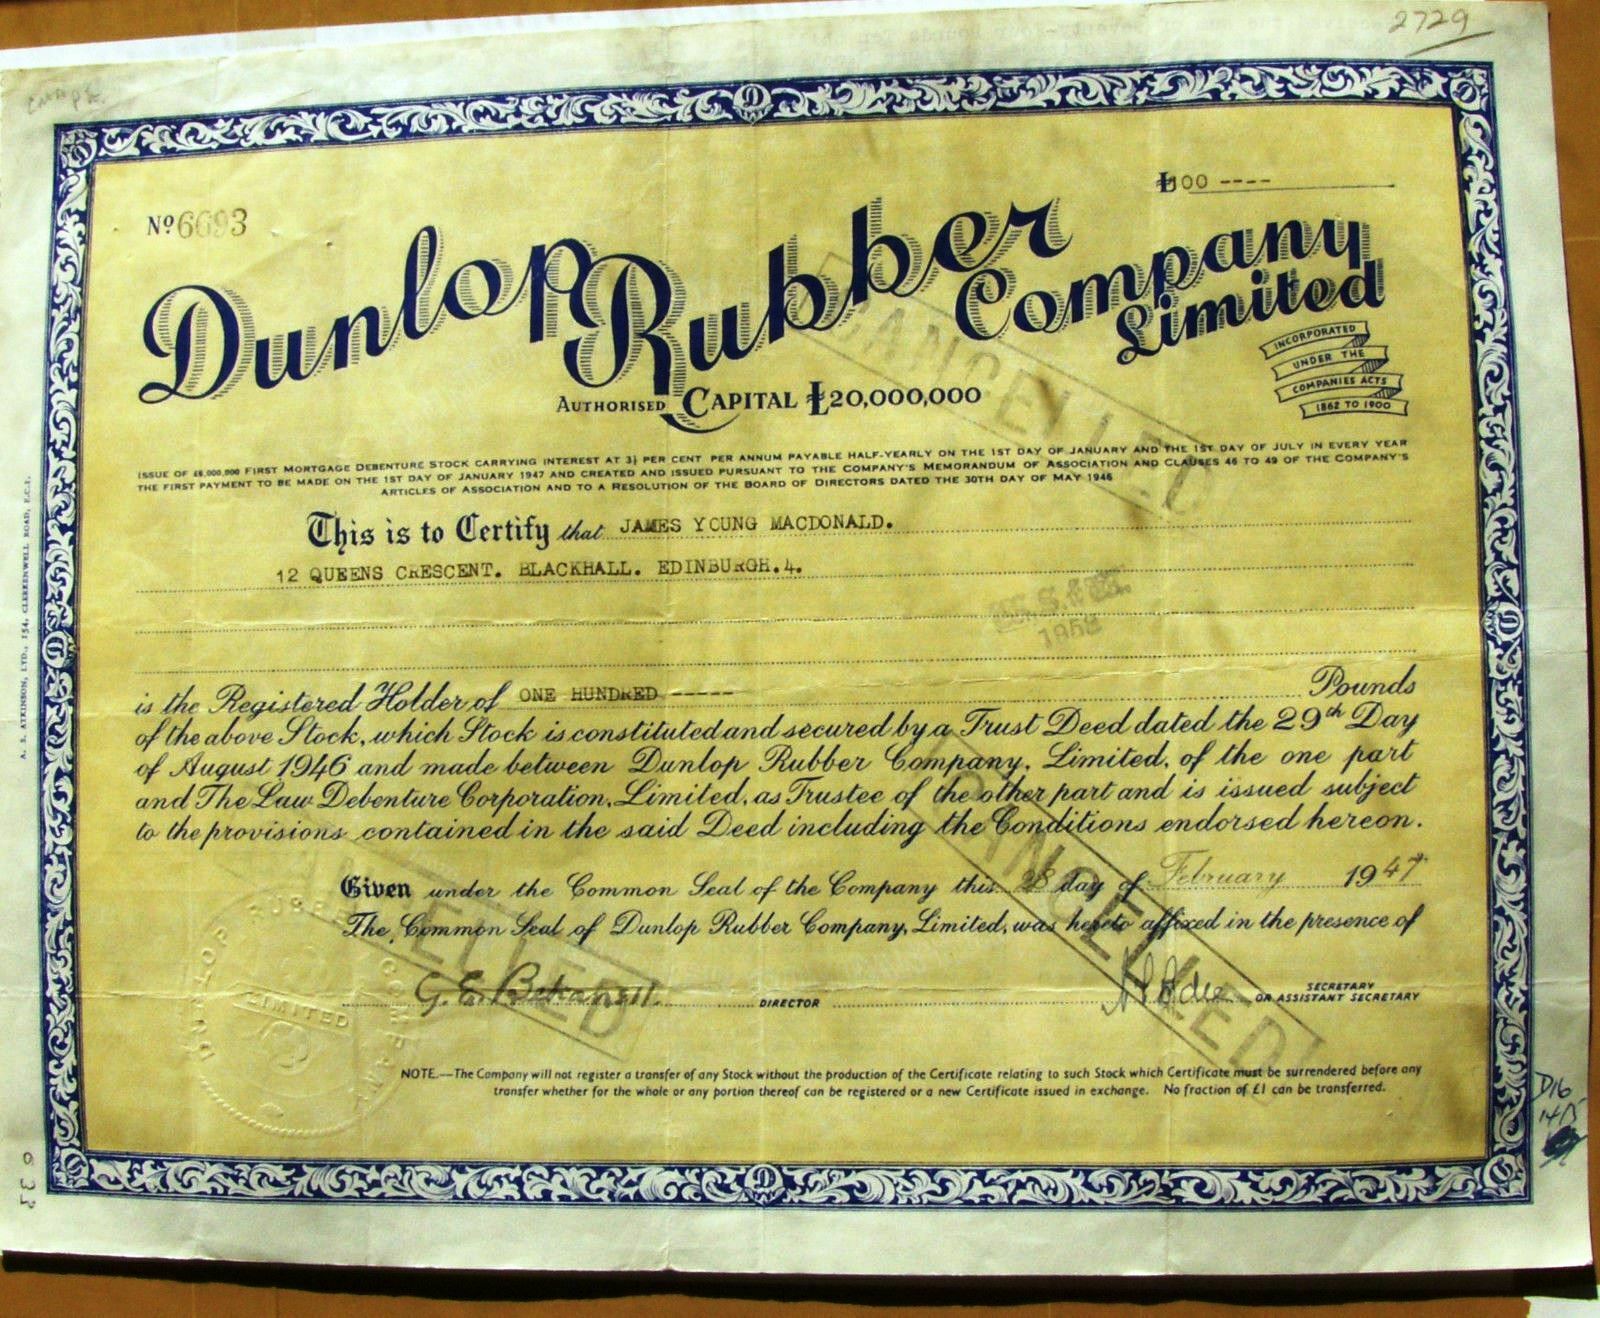 2729
£100 ----
Nº 6693
Dunlop Rubber Company Limited
INCORPORATED
UNDER THE
COMPANIES ACTS
1862 TO 1900
AUTHORISED CAPITAL £20,000,000
ISSUE OF £6,000,000 FIRST MORTGAGE DEBENTURE STOCK CARRYING INTEREST AT 3½ PER CENT PER ANNUM PAYABLE HALF-YEARLY ON THE 1ST DAY OF JANUARY AND THE 1ST DAY OF JULY IN EVERY YEAR
THE FIRST PAYMENT TO BE MADE ON THE 1ST DAY OF JANUARY 1947 AND CREATED AND ISSUED PURSUANT TO THE COMPANY'S MEMORANDUM OF ASSOCIATION AND CLAUSES 46 TO 49 OF THE COMPANY'S
ARTICLES OF ASSOCIATION AND TO A RESOLUTION OF THE BOARD OF DIRECTORS DATED THE 30TH DAY OF MAY 1946
CANCELLED
This is to Certify that JAMES YOUNG MACDONALD.
12 QUEENS CRESCENT. BLACKHALL. EDINBURGH.4.
1952
is the Registered Holder of ONE HUNDRED ----- Pounds
of the above Stock, which Stock is constituted and secured by a Trust Deed dated the 29th Day
of August 1946 and made between Dunlop Rubber Company, Limited, of the one part
and The Law Debenture Corporation, Limited, as Trustee of the other part and is issued subject
to the provisions contained in the said Deed including the Conditions endorsed hereon.
CANCELLED
Given under the Common Seal of the Company this 28 day of February 1947
The Common Seal of Dunlop Rubber Company, Limited, was hereto affixed in the presence of
CANCELLED
DUNLOP RUBBER COMPANY
LIMITED
DIRECTOR
SECRETARY
OR ASSISTANT SECRETARY
NOTE.—The Company will not register a transfer of any Stock without the production of the Certificate relating to such Stock which Certificate must be surrendered before any
transfer whether for the whole or any portion thereof can be registered or a new Certificate issued in exchange. No fraction of £1 can be transferred.
D16
A. J. ATKINSON, LTD., 154, CLERKENWELL ROAD, E.C.1.